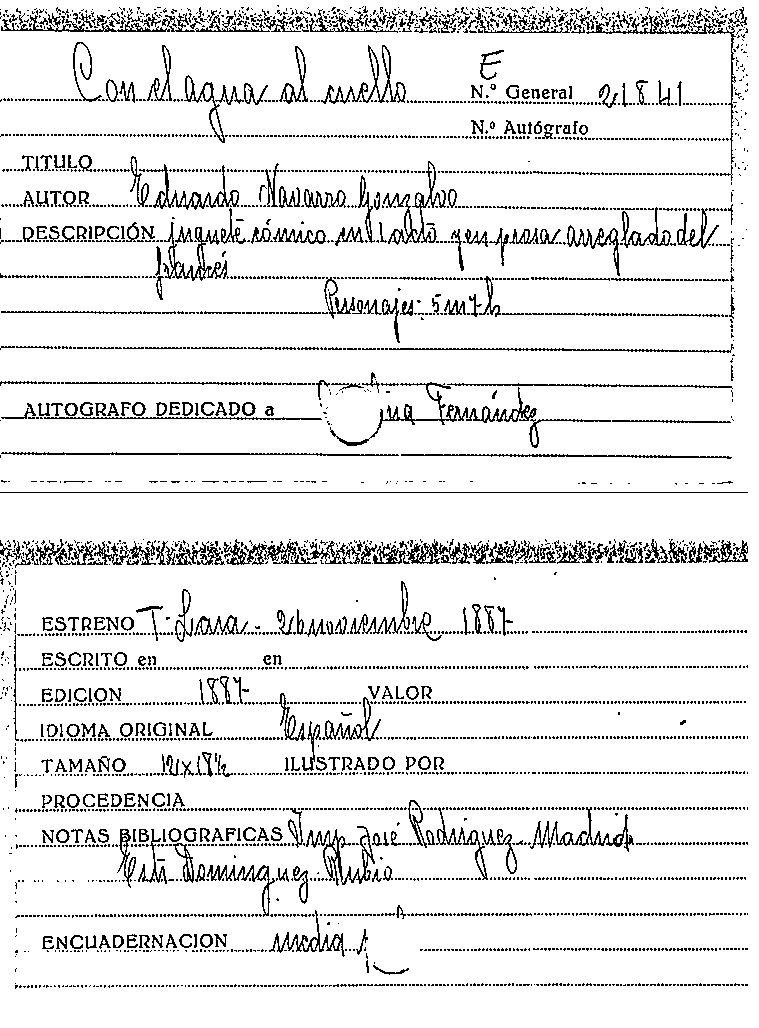 Con el agua al cuello
E
N.º General 21841
N.º Autógrafo
TITULO
AUTOR Eduardo Navarro Gonzalvo
DESCRIPCIÓN juguete cómico en 1 acto y en prosa arreglado del
francés
Personajes: 5 m 7 h
AUTOGRAFO DEDICADO a Fernández
ESTRENO T. Lara - 26 noviembre 1887
ESCRITO en en
EDICION 1887 VALOR
IDIOMA ORIGINAL Español
TAMAÑO ILUSTRADO POR
PROCEDENCIA
NOTAS BIBLIOGRAFICAS Imp. José Rodriguez. Madrid
Dominguez Rubio
ENCUADERNACION media